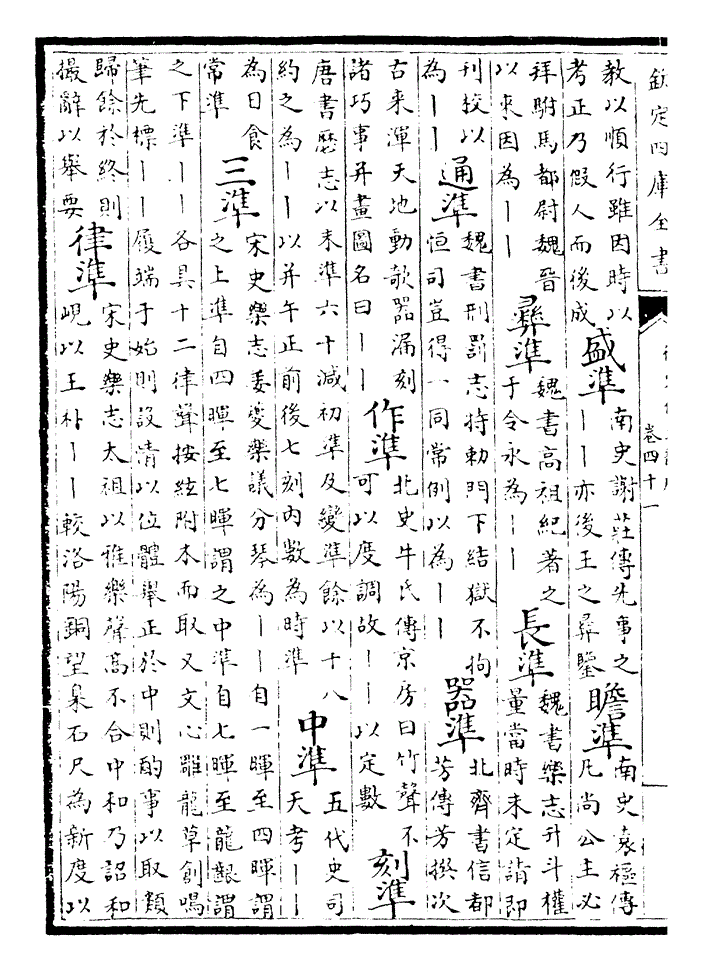 欽定四庫全書
卷四十一
教以順行雖因時以
考正乃假人而後成
盛準
南史謝莊傳先事之
丨丨亦後王之彛鑒
瞻準
南史袁樞傳
凡尚公主必
拜駙馬都尉魏晉
以來因為丨丨
彛準
魏書髙祖紀著之
于令永為丨丨
長準
魏書樂志升斗權
量當時未定請即
刋挍以
為丨丨
通準
魏書刑罰志特勅門下結獄不拘
恒司豈得一同常例以為丨丨
器準
北齊書信都
芳傳芳撰次
古来渾天地動欹器漏刻
諸巧事并畫圖名曰丨丨
作準
北史牛氏傳京房曰竹聲不
可以度調故丨丨以定數
刻準
唐書厯志以末準六十減初準及變準餘以十八
約之為丨丨以并午正前後七刻内數為時準
中準
五代史司
天考丨丨
為日食
常準
三準
宋史樂志姜夔樂議分琴為丨丨自一暉至四暉謂
之上準自四暉至七暉謂之中準自七暉至龍齦謂
之下準丨丨各具十二律聲按絃附木而取又文心雕龍草創鳴
筆先標丨丨履端于始則設清以位體舉正於中則酌事以取類
歸餘於終則
撮辭以舉要
律準
宋史樂志太祖以雅樂聲髙不合中和乃詔和
峴以王朴丨丨較洛陽銅望臬石尺為新度以